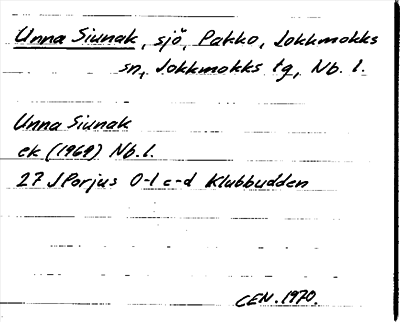 Unna Siunak, sjö, Pakko, Jokkmokks
sn, Jokkmokks tg, Nb. l.
Unna Siunak
ek (1969) Nb. l.
27 J Porjus 0-1 c-d Klubbudden
CEN. 1970.